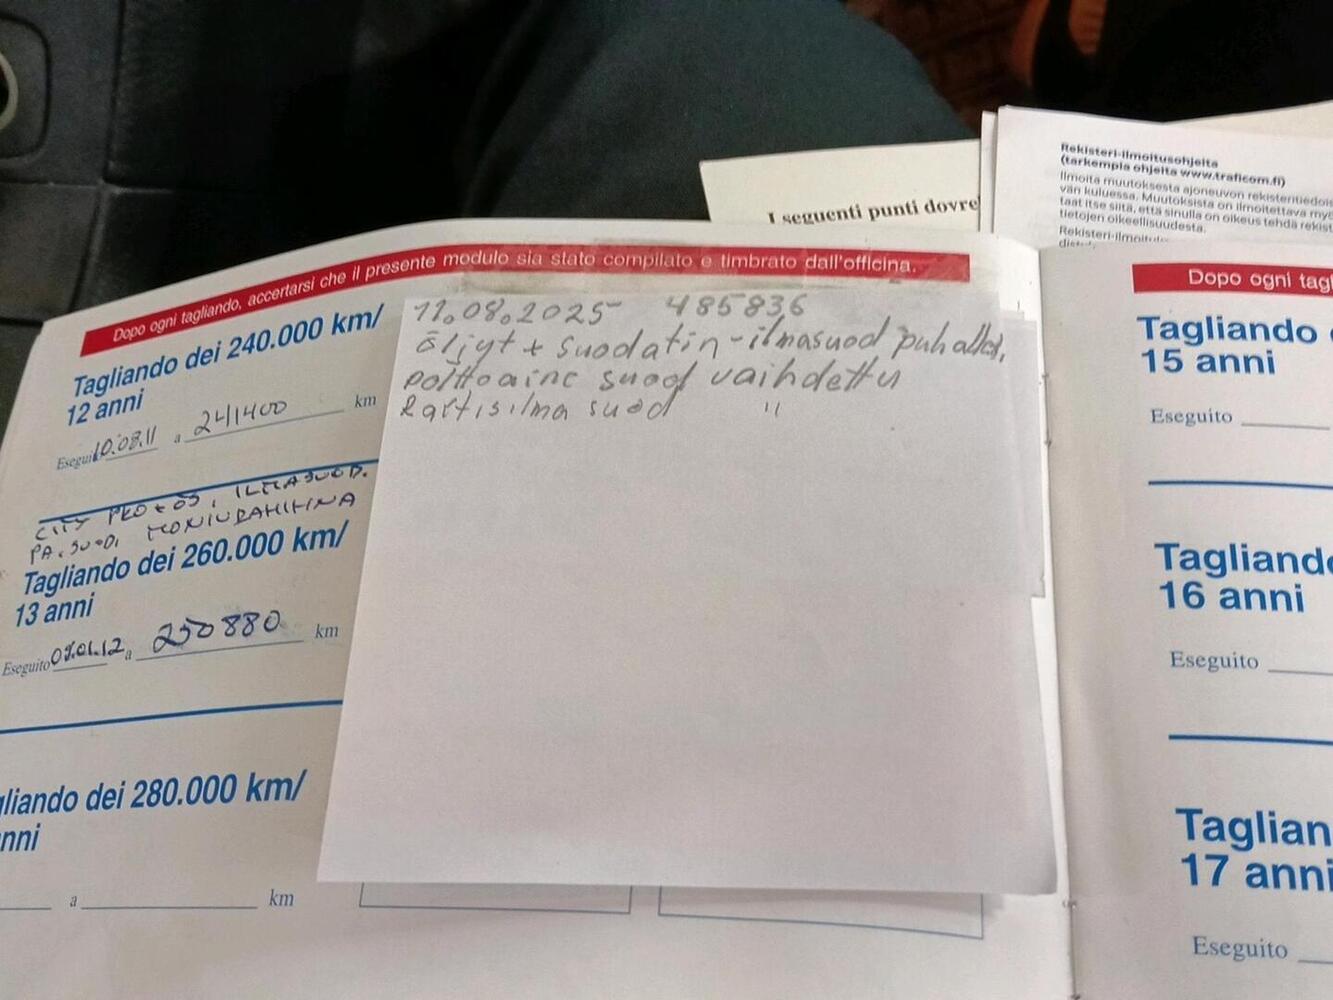 Rekisteri-ilmoitusohjeita
(tarkempia ohjeita www.traficom.fi)
Ilmoita muutoksesta ajoneuvon rekisteritiedois
vän kuluessa. Muutoksista on ilmoitettava myö
taat itse siitä, että sinulla on oikeus tehdä rekist
tietojen oikeellisuudesta.
I seguenti punti dovre
Dopo ogni tagliando, accertarsi che il presente modulo sia stato compilato e timbrato dall'officina.
Tagliando dei 240.000 km/
12 anni
Eseguito 10.08.11 a 241400 km
CITY PRO + ÖS, ILMASUOD.
PA. SUOD, MONIURAHIHNA
Tagliando dei 260.000 km/
13 anni
Eseguito 09.01.12 a 250880 km
gliando dei 280.000 km/
nni
a km
11.08.2025 485836
öljyt + suodatin - ilmasuod puhallet.
polttoaine suod vaihdettu
Raitisilma suod "
Dopo ogni tagl
Tagliando
15 anni
Eseguito
Tagliand
16 anni
Eseguito
Taglian
17 anni
Eseguito